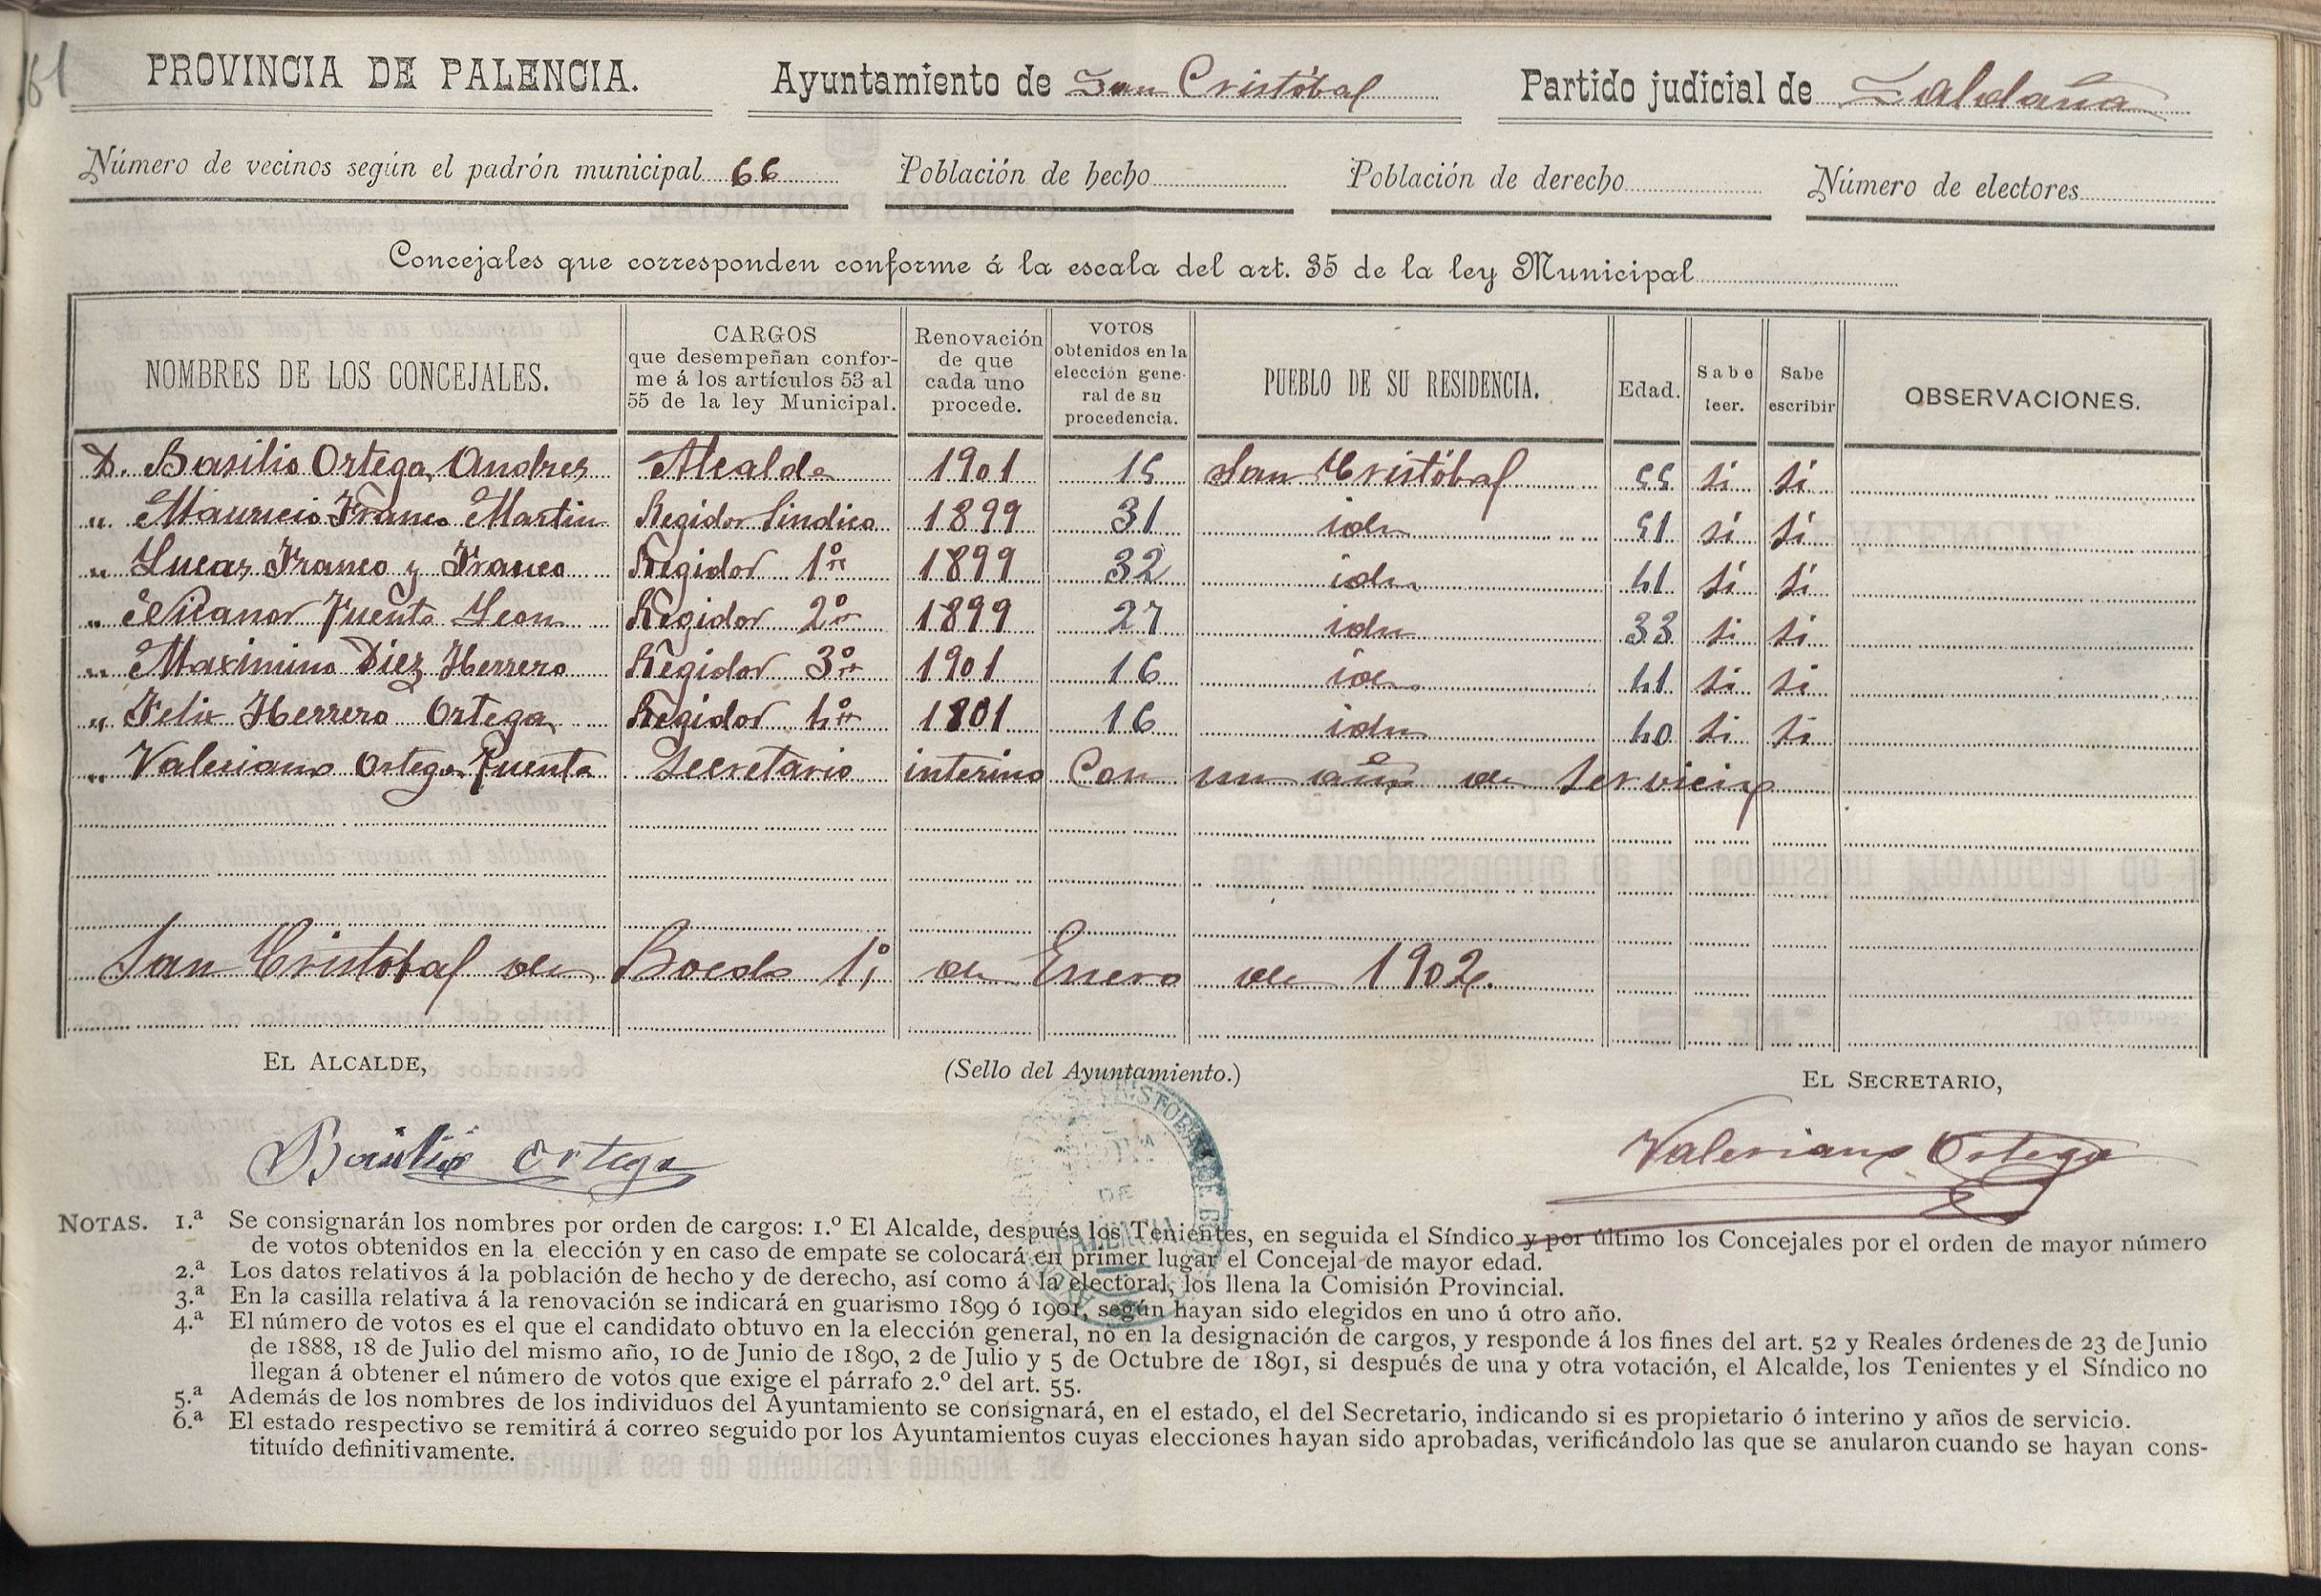 61
PROVINCIA DE PALENCIA. Ayuntamiento de San Cristóbal Partido judicial de Saldaña
Número de vecinos según el padrón municipal 66 Población de hecho Población de derecho Número de electores
Concejales que corresponden conforme á la escala del art. 35 de la ley Municipal
NOMBRES DE LOS CONCEJALES. CARGOS que desempeñan conforme á los artículos 53 al 55 de la ley Municipal. Renovación de que cada uno procede. VOTOS obtenidos en la elección general de su procedencia. PUEBLO DE SU RESIDENCIA. Edad. Sabe leer. Sabe escribir OBSERVACIONES.
D. Basilio Ortega Andres Alcalde 1901 15 San Cristóbal 55 si si
" Mauricio Franco Martin Regidor Sindico 1899 31 idn 51 si si
" Lucas Franco y Franco Regidor 1º 1899 32 idn 41 si si
" Nicanor Fuente Leon Regidor 2º 1899 27 idn 33 si si
" Maximino Diez Herrero Regidor 3º 1901 16 idn 41 si si
" Felix Herrero Ortega Regidor 4º 1801 16 idn 40 si si
" Valeriano Ortega Fuente Secretario interino Con un año de servicio
San Cristóbal de Boedo 1º de Enero de 1902.
EL ALCALDE, (Sello del Ayuntamiento.) EL SECRETARIO,
Basilio Ortega Valeriano Ortega
NOTAS. 1.ª Se consignarán los nombres por orden de cargos: 1.º El Alcalde, después los Tenientes, en seguida el Síndico y por último los Concejales por el orden de mayor número
de votos obtenidos en la elección y en caso de empate se colocará en primer lugar el Concejal de mayor edad.
2.ª Los datos relativos á la población de hecho y de derecho, así como á la electoral, los llena la Comisión Provincial.
3.ª En la casilla relativa á la renovación se indicará en guarismo 1899 ó 1901, según hayan sido elegidos en uno ú otro año.
4.ª El número de votos es el que el candidato obtuvo en la elección general, no en la designación de cargos, y responde á los fines del art. 52 y Reales órdenes de 23 de Junio
de 1888, 18 de Julio del mismo año, 10 de Junio de 1890, 2 de Julio y 5 de Octubre de 1891, si después de una y otra votación, el Alcalde, los Tenientes y el Síndico no
llegan á obtener el número de votos que exige el párrafo 2.º del art. 55.
5.ª Además de los nombres de los individuos del Ayuntamiento se consignará, en el estado, el del Secretario, indicando si es propietario ó interino y años de servicio.
6.ª El estado respectivo se remitirá á correo seguido por los Ayuntamientos cuyas elecciones hayan sido aprobadas, verificándolo las que se anularon cuando se hayan cons-
tituído definitivamente.